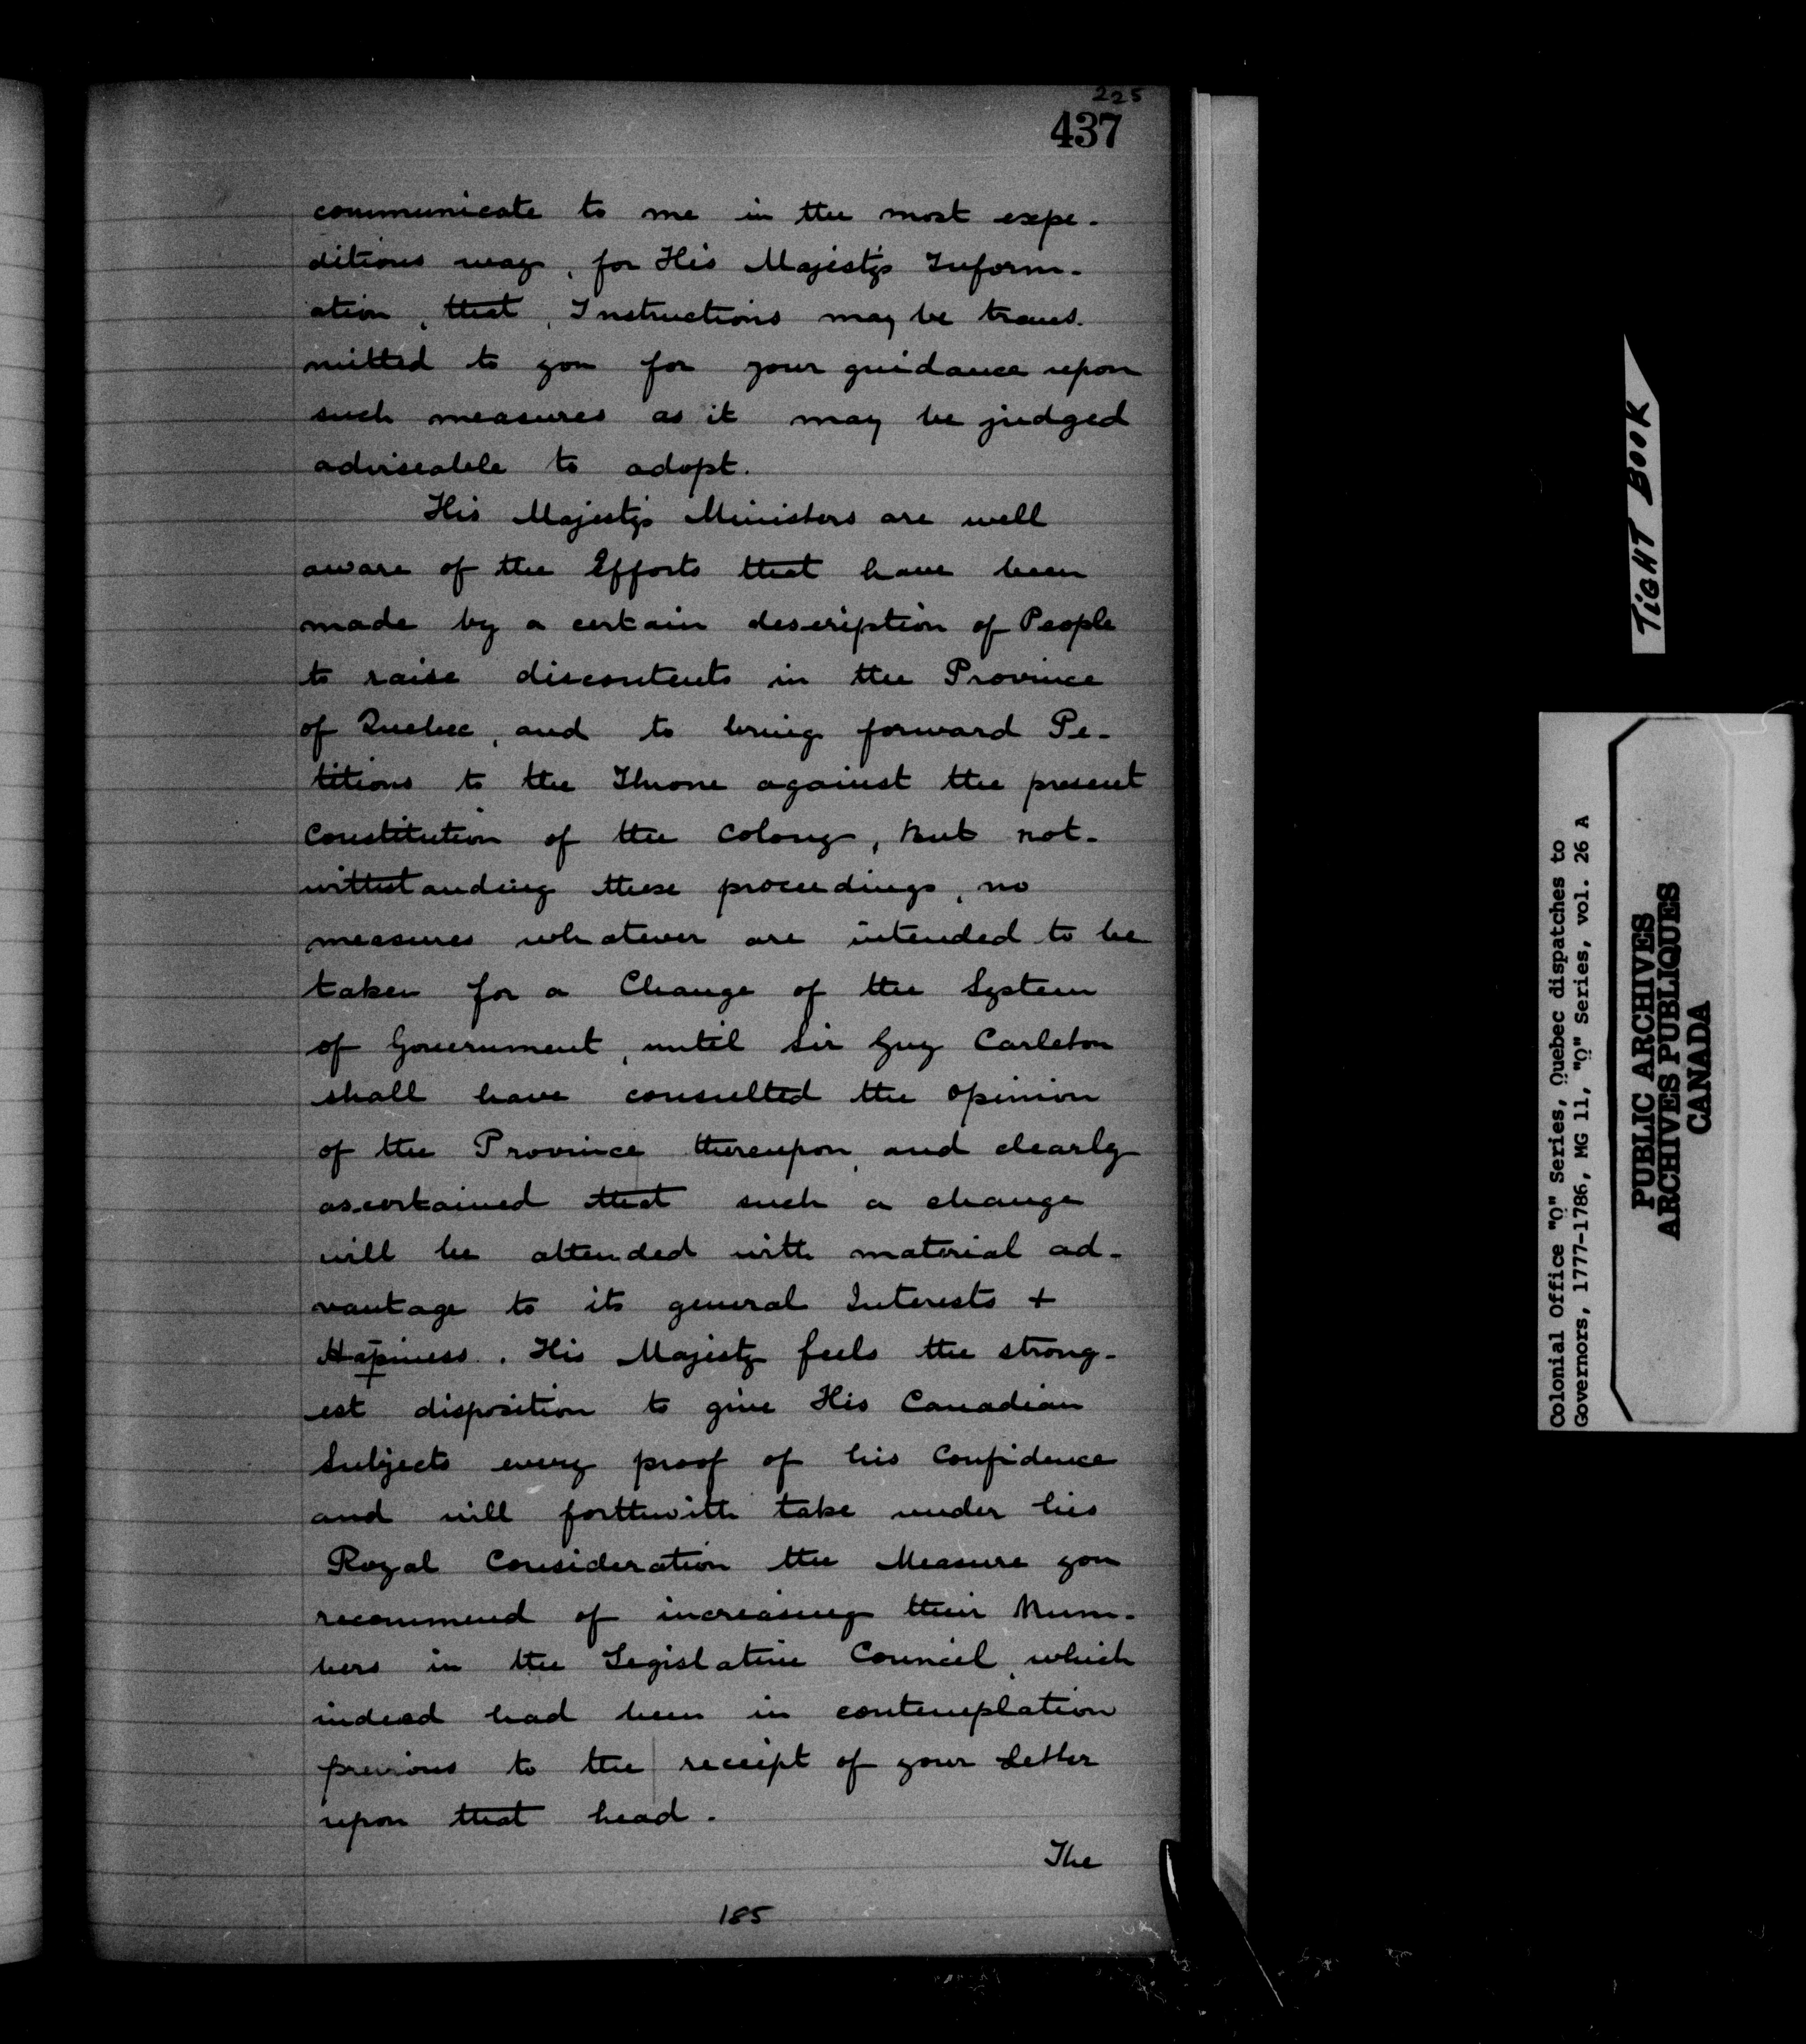 225
437
communicate to me in the most expe-
ditious way, for His Majesty's Inform-
ation, that, Instructions may be trans-
mitted to you for your guidance upon
such measures as it may be judged
adviseable to adopt.
His Majesty's Ministers are well
aware of the Efforts that have been
made by a certain description of People
to raise discontents in the Province
of Quebec, and to bring forward Pe-
titions to the Throne against the present
Constitution of the Colony, but not-
withstanding these proceedings, no
measures whatever are intended to be
taken for a Change of the System
of Government, until Sir Guy Carleton
shall have consulted the opinion
of the Province thereupon, and clearly
ascertained that such a change
will be attended with material ad-
vantage to its general Interests +
Hapiness. His Majesty feels the strong-
est disposition to give His Canadian
Subjects every proof of his Confidence
and will forthwith take under his
Royal Consideration the Measure you
recommend of increasing their Num-
bers in the Legislative Council, which
indeed had been in contemplation
previous to the receipt of your Letter
upon that head.
The
185
TIGHT BOOK
Colonial Office "Q" Series, Quebec dispatches to
Governors, 1777-1786, MG 11, "Q" Series, vol. 26 A
PUBLIC ARCHIVES
ARCHIVES PUBLIQUES
CANADA